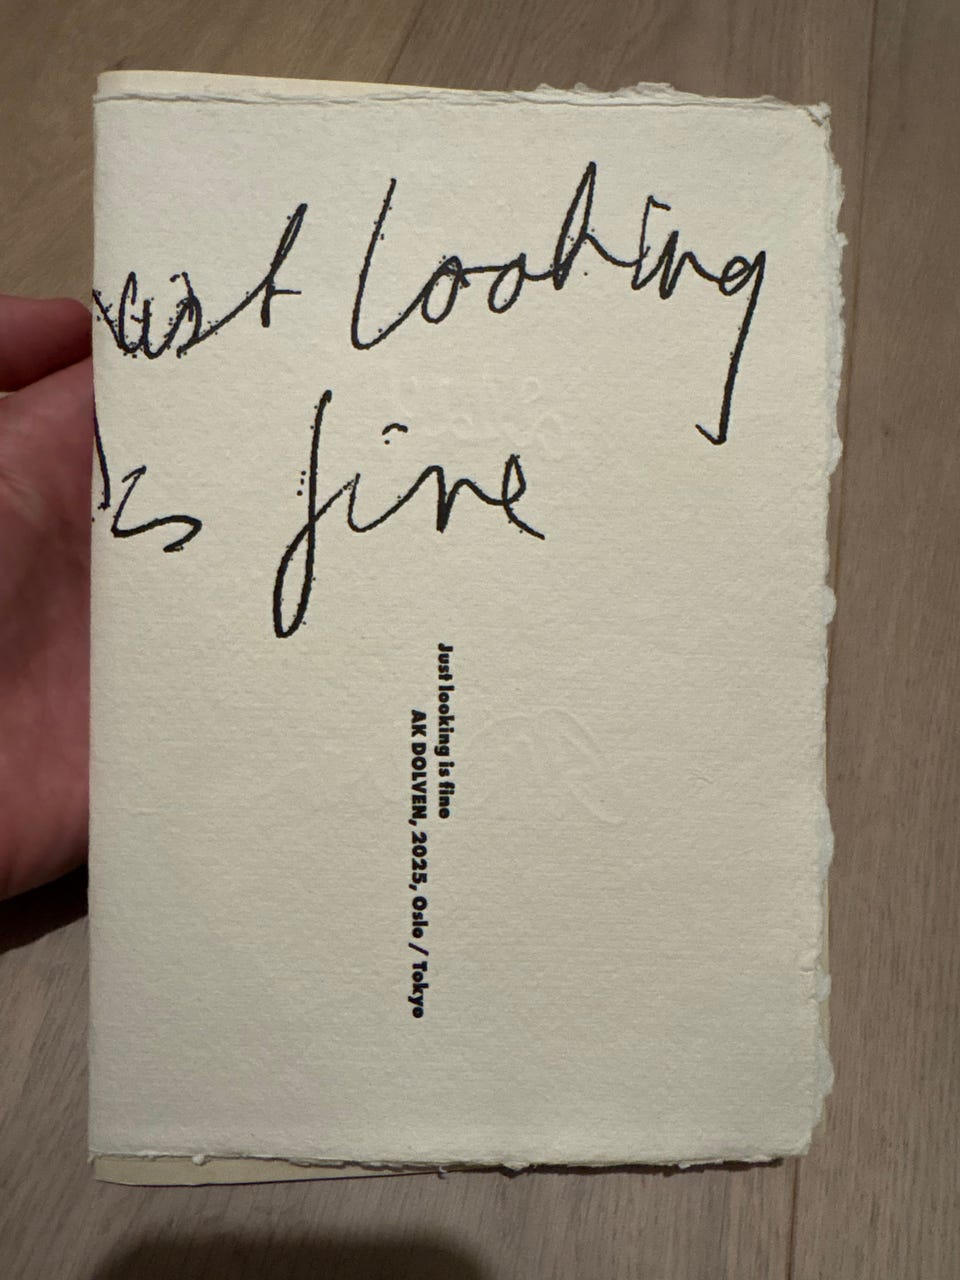 ust looking
is fine
Just looking is fine
AK DOLVEN, 2025, Oslo / Tokyo